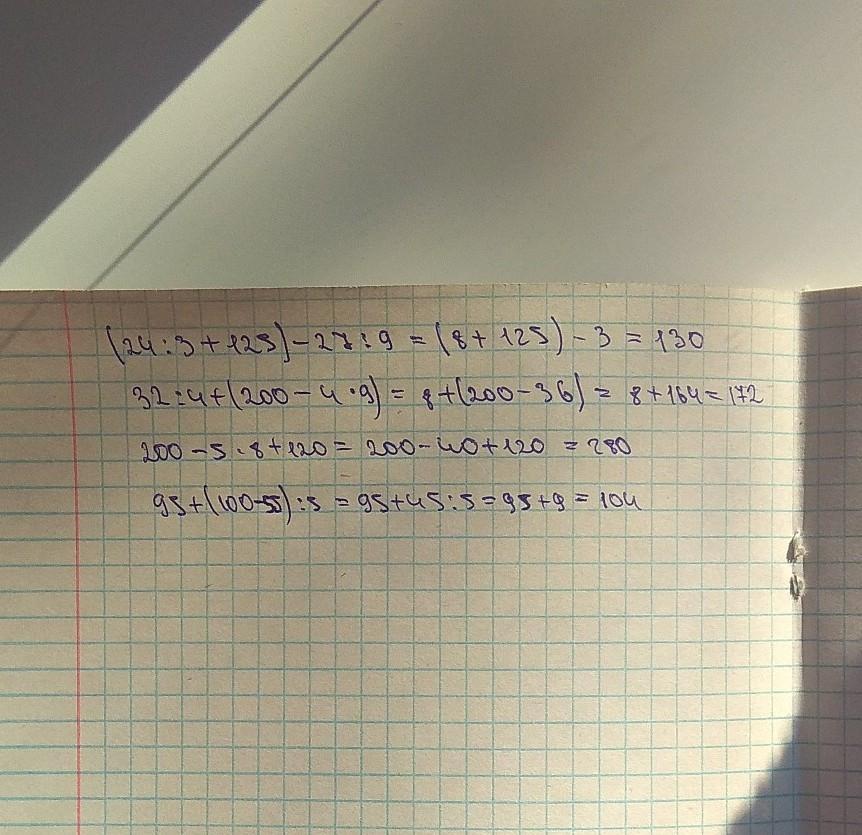 (24:3+125)-27:9=(8+125)-3=130
32:4+(200-4·9)=8+(200-36)=8+164=172
200-5·8+120=200-40+120=280
95+(100-55):5=95+45:5=95+9=104